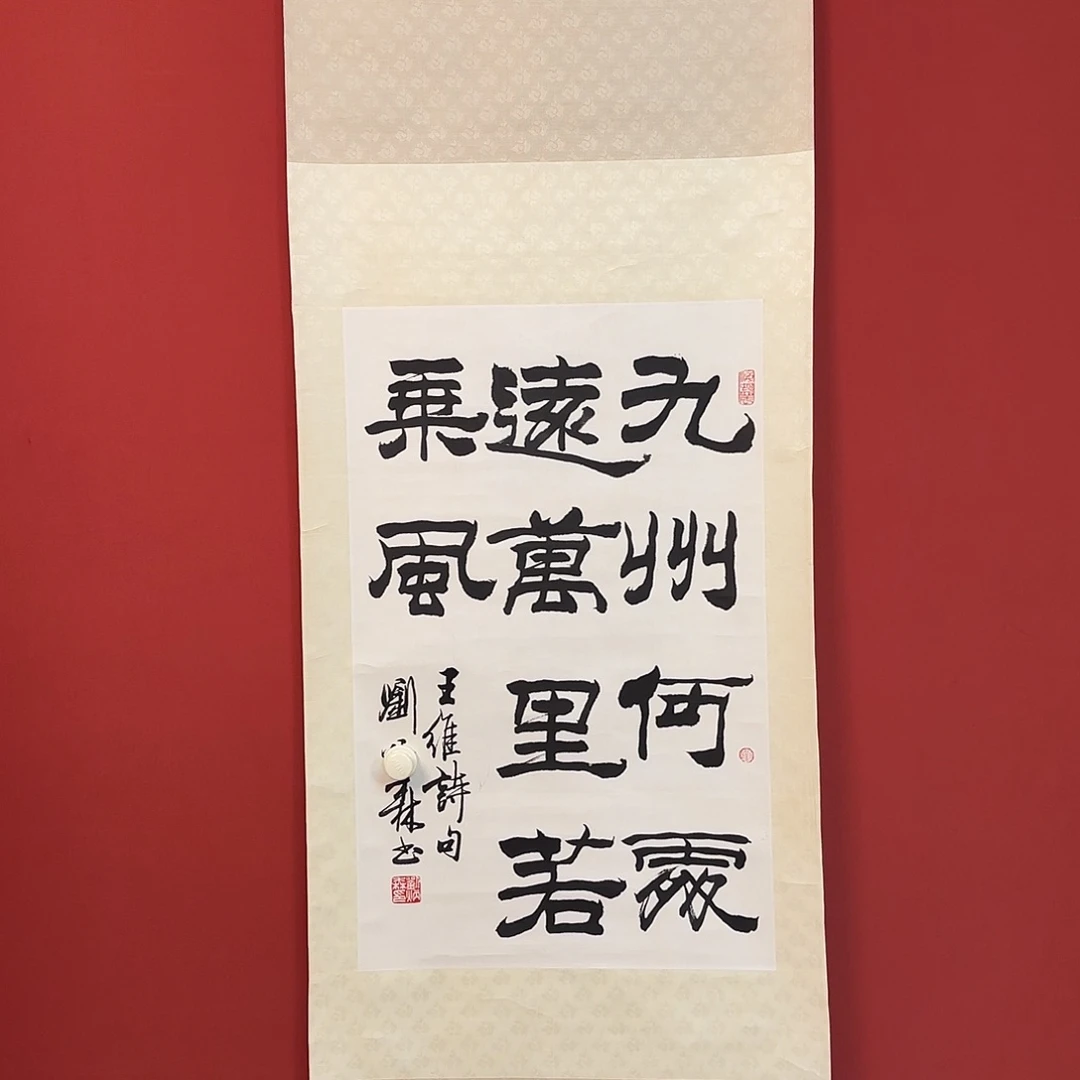 九州何處
遠萬里若
乘風
王維詩句
劉森書